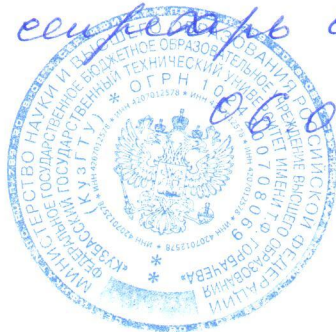 секретарь
06.0
МИНИСТЕРСТВО НАУКИ И ВЫСШЕГО ОБРАЗОВАНИЯ РОССИЙСКОЙ ФЕДЕРАЦИИ
ФЕДЕРАЛЬНОЕ ГОСУДАРСТВЕННОЕ БЮДЖЕТНОЕ ОБРАЗОВАТЕЛЬНОЕ УЧРЕЖДЕНИЕ ВЫСШЕГО ОБРАЗОВАНИЯ
«КУЗБАССКИЙ ГОСУДАРСТВЕННЫЙ ТЕХНИЧЕСКИЙ УНИВЕРСИТЕТ ИМЕНИ Т.Ф. ГОРБАЧЕВА»
(КУЗГТУ) * ОГРН 10 0708069 *
* ИНН 4207012578 * ИНН 4207012578 * ИНН 4207012578